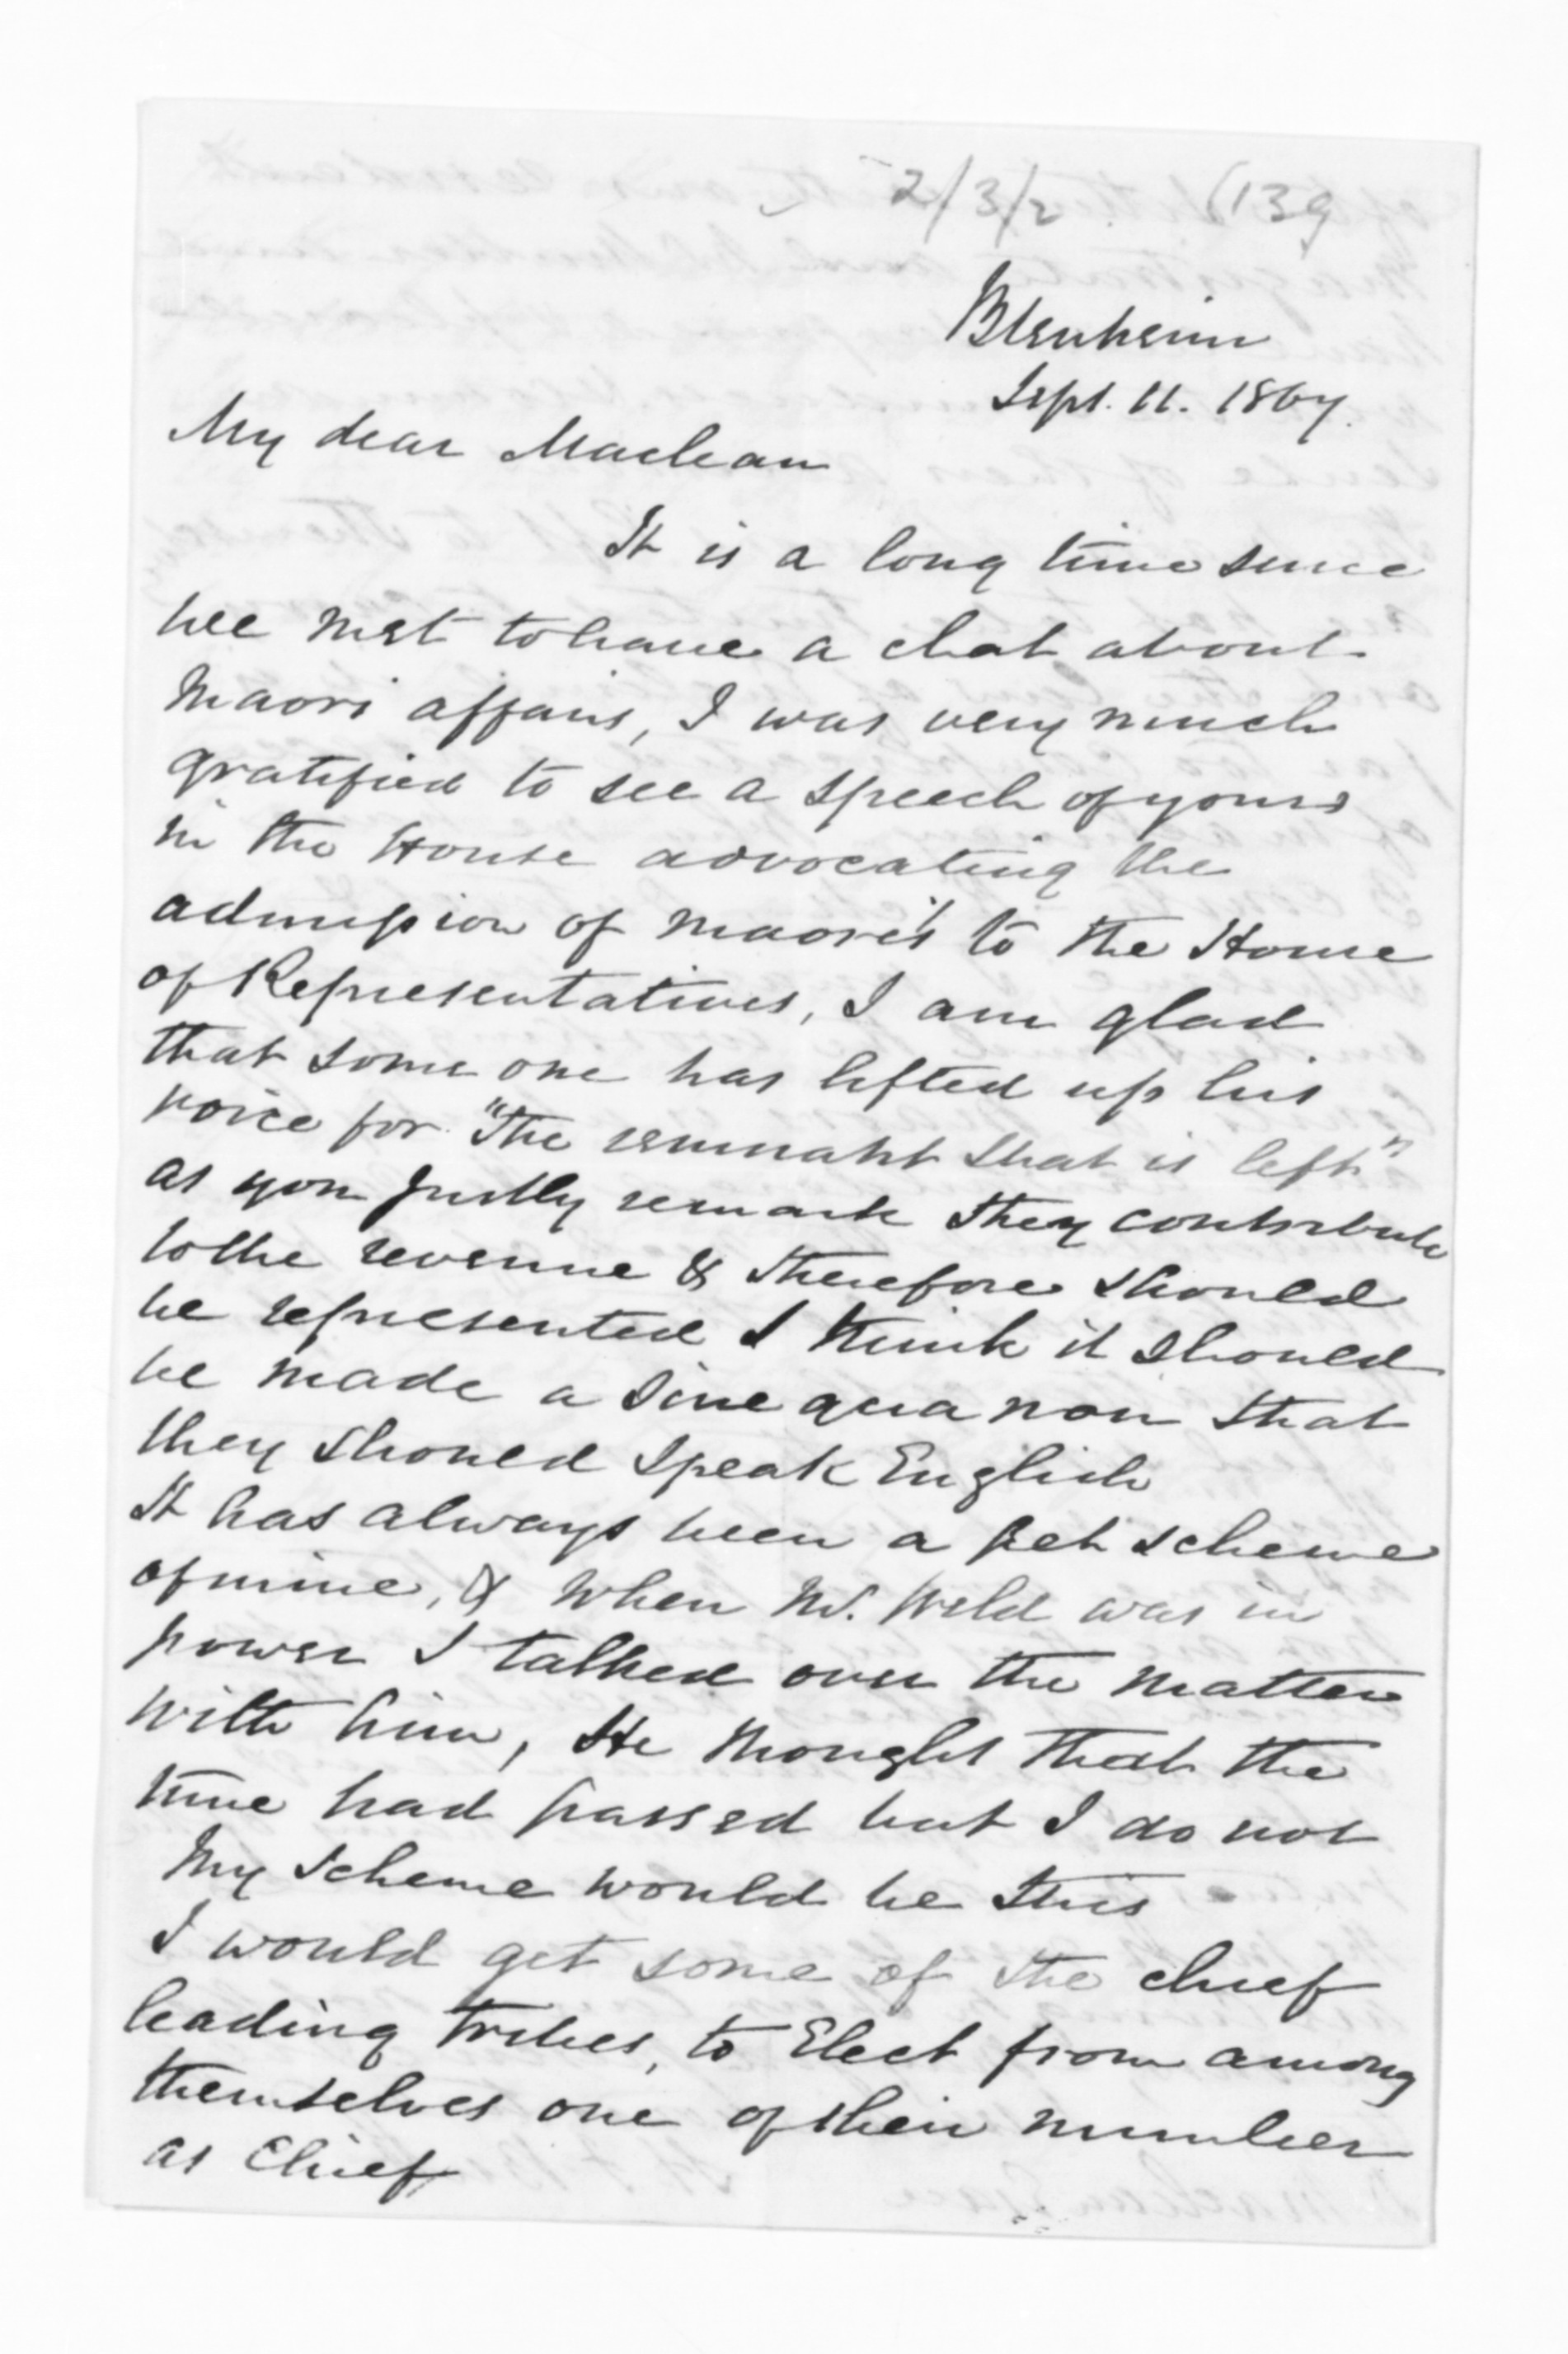 2/3/2 (139
Blenheim
Sept. 11. 1867.
My dear Maclean
It is a long time since
we met to have a chat about
Maori affairs, I was very much
gratified to see a speech of yours
in the House advocating the
admission of maories to the House
of Representatives, I am glad
that some one has lifted up his
voice for "the remnant that is left"
as you justly remark they contribute
to the revenue & therefore should
be represented I think it should
be made a sine qua non that
they should speak English
It has always been a pet scheme
of mine, & when Mr. Weld was in
power I talked over the matter
with him, He thought that the
time had passed but I do not
My scheme would be this
I would get some of the chief
leading tribes, to Elect from among
themselves one of their number
as Chief,